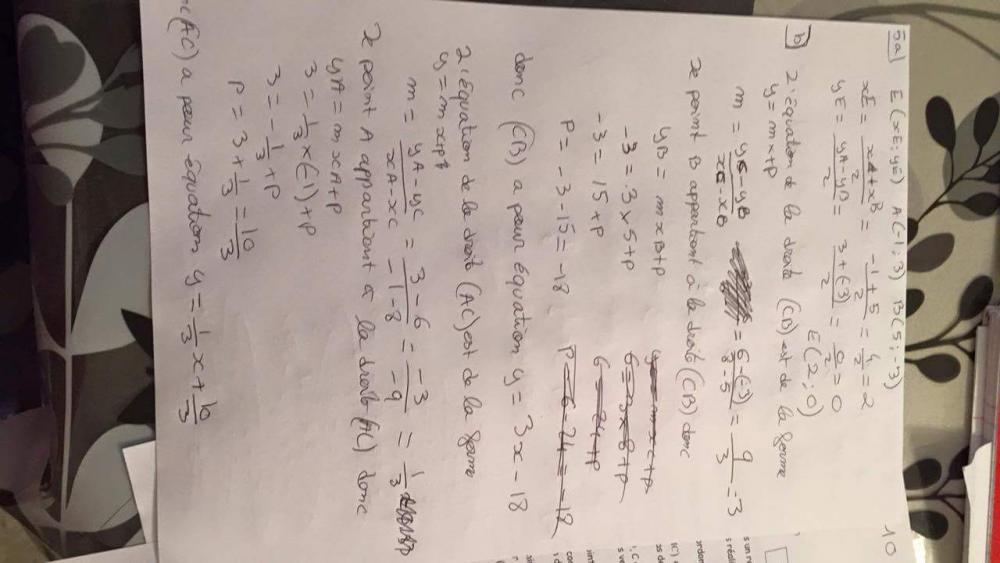 10
5a) E(xE; yE) A(-1; 3) B(5; -3)
xE = (xA + xB)/2 = (-1 + 5)/2 = 4/2 = 2
yE = (yA - yB)/2 = (3 + (-3))/2 = 0/2 = 0
E(2; 0)
b) L'équation de la droite (CB) est de la forme
y = mx + p
m = (yC - yB)/(xC - xB) = (6 - (-3))/(8 - 5) = 9/3 = 3
Le point B appartient à la droite (CB) donc
yB = m xB + p y = m xc + p
-3 = 3 x 5 + p 6 = 3 x 8 + p
-3 = 15 + p 6 = 24 + p
P = -3 - 15 = -18 P = 6 - 24 = -18
donc (CB) a pour équation y = 3x - 18
L'équation de la droite (AC) est de la forme
y = mx + p
m = (yA - yC)/(xA - xC) = (3 - 6)/(-1 - 8) = -3/-9 = 1/3
Le point A appartient à la droite (AC) donc
yA = m xA + p
3 = 1/3 x (-1) + p
3 = -1/3 + p
P = 3 + 1/3 = 10/3
(AC) a pour équation y = 1/3 x + 10/3